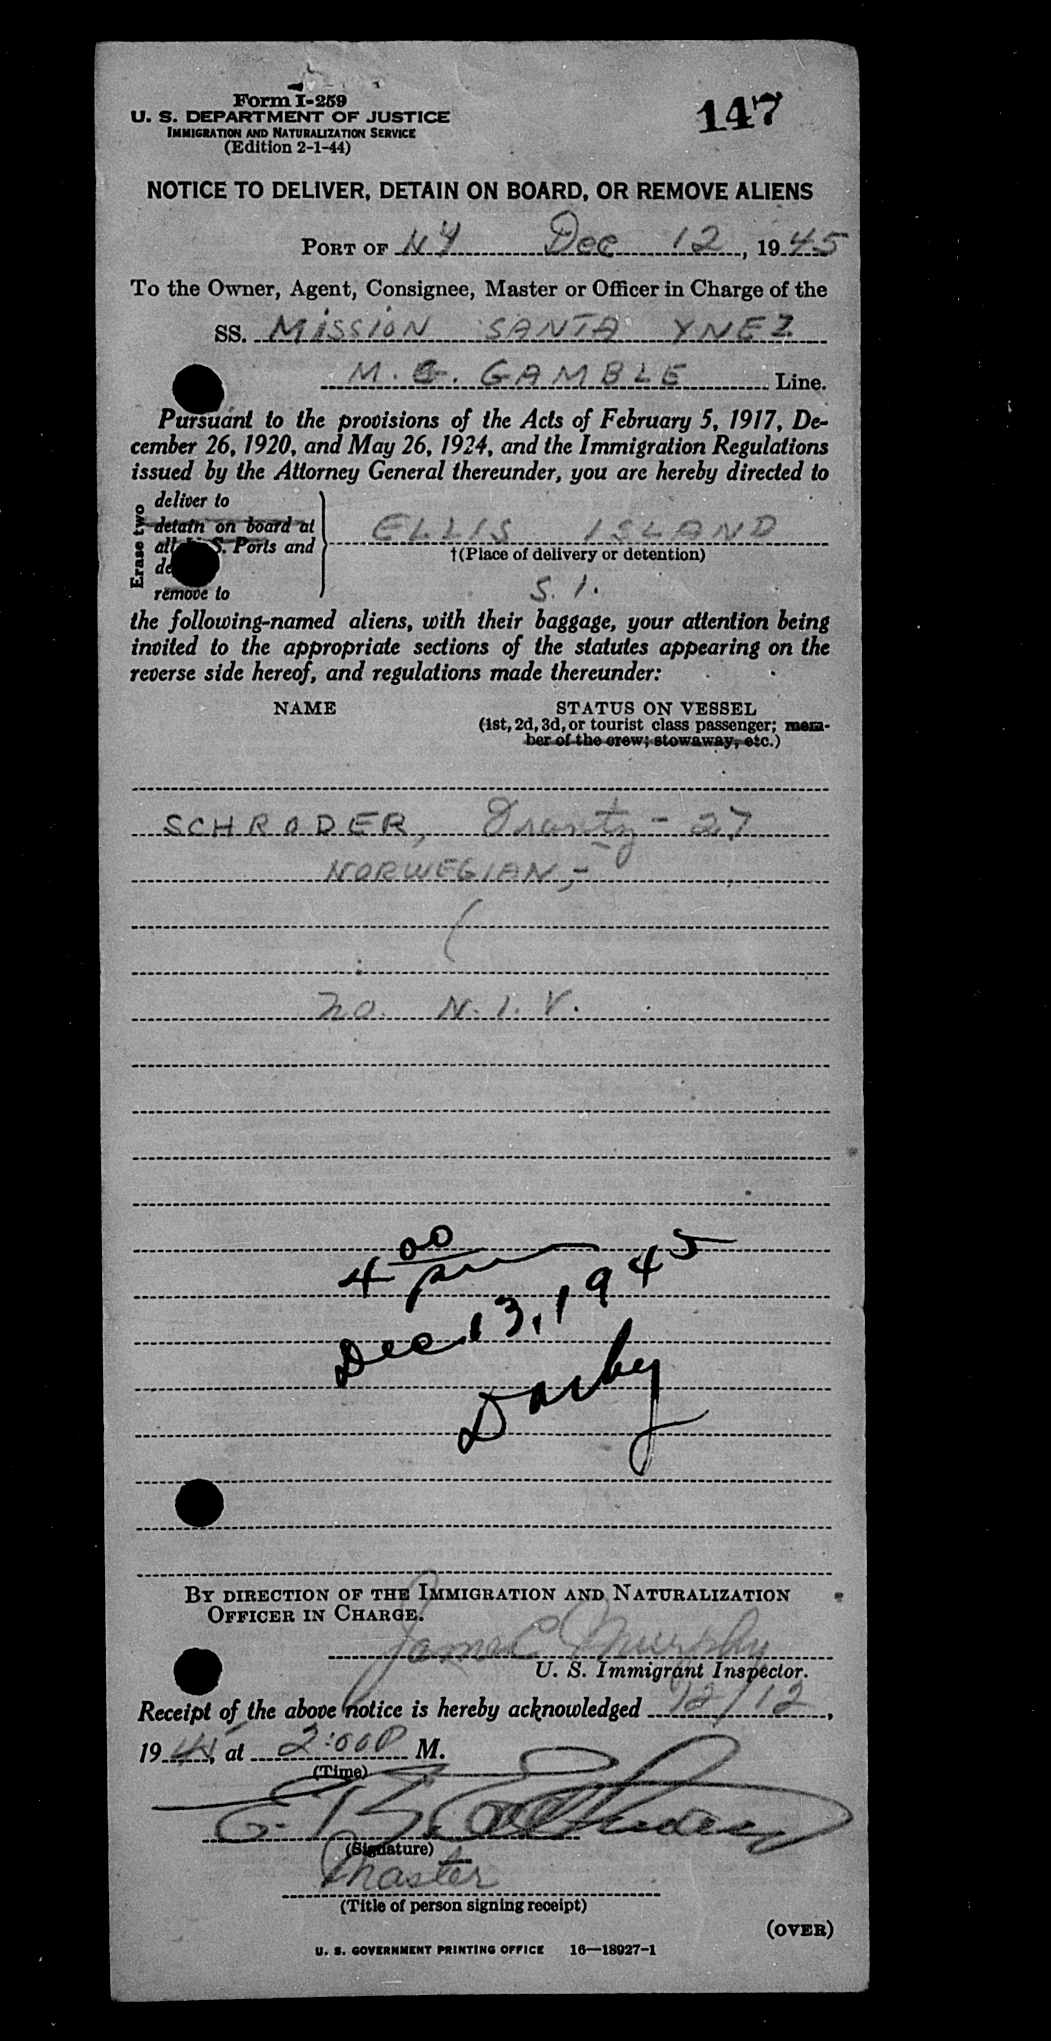 Form I-259
147
U. S. DEPARTMENT OF JUSTICE
IMMIGRATION AND NATURALIZATION SERVICE
(Edition 2-1-44)
NOTICE TO DELIVER, DETAIN ON BOARD, OR REMOVE ALIENS
PORT OF NY Dec 12, 1945
To the Owner, Agent, Consignee, Master or Officer in Charge of the
SS. MISSION SANTA YNEZ
M. G. GAMBLE Line.
Pursuant to the provisions of the Acts of February 5, 1917, De-
cember 26, 1920, and May 26, 1924, and the Immigration Regulations
issued by the Attorney General thereunder, you are hereby directed to
Erase two
deliver to
detain on board at
all U. S. Ports and
remove to
ELLIS ISLAND
†(Place of delivery or detention)
S. I.
the following-named aliens, with their baggage, your attention being
invited to the appropriate sections of the statutes appearing on the
reverse side hereof, and regulations made thereunder:
NAME STATUS ON VESSEL
(1st, 2d, 3d, or tourist class passenger; mem-
ber of the crew; stowaway, etc.)
SCHRODER, - 27
NORWEGIAN, -
(
no. N. I. V.
4 00 pm
Dec. 13, 1945
Darby
BY DIRECTION OF THE IMMIGRATION AND NATURALIZATION
OFFICER IN CHARGE.
James Murphy
U. S. Immigrant Inspector.
Receipt of the above notice is hereby acknowledged 12/12,
1945, at 2:00 P M.
(Time)
E. B.
(Signature)
Master
(Title of person signing receipt)
(OVER)
U. S. GOVERNMENT PRINTING OFFICE 16—18927-1